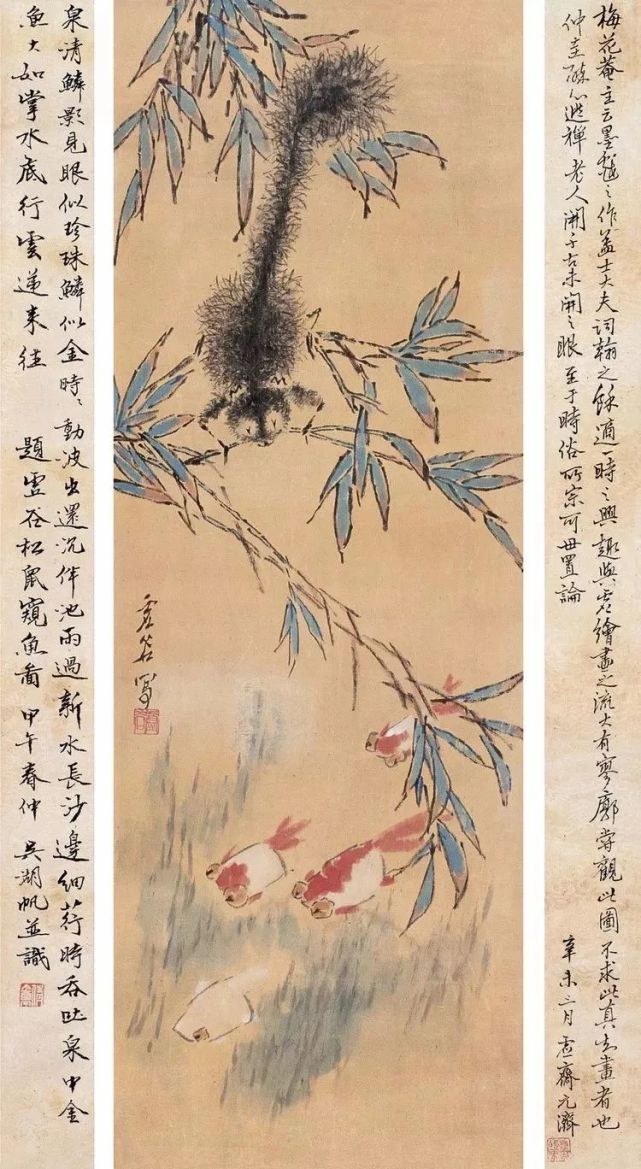 梅花菴主云墨戲之作蓋士大夫詞翰之餘適一時之興趣與夫繪畫之流大有寥廓嘗觀此圖不求此真者也
仲圭心逃禪老人開千古未開之眼至于時俗所宗可毋置論
辛未三月虛齋元濟
虛谷寫
泉清鱗影見眼似珍珠鱗似金時時動波出還沉伴池雨過新水長沙邊細荇時吞吐泉中金
魚大如掌水底行雲遞來往 題虛谷松鼠窺魚圖 甲午春仲 吳湖帆並識